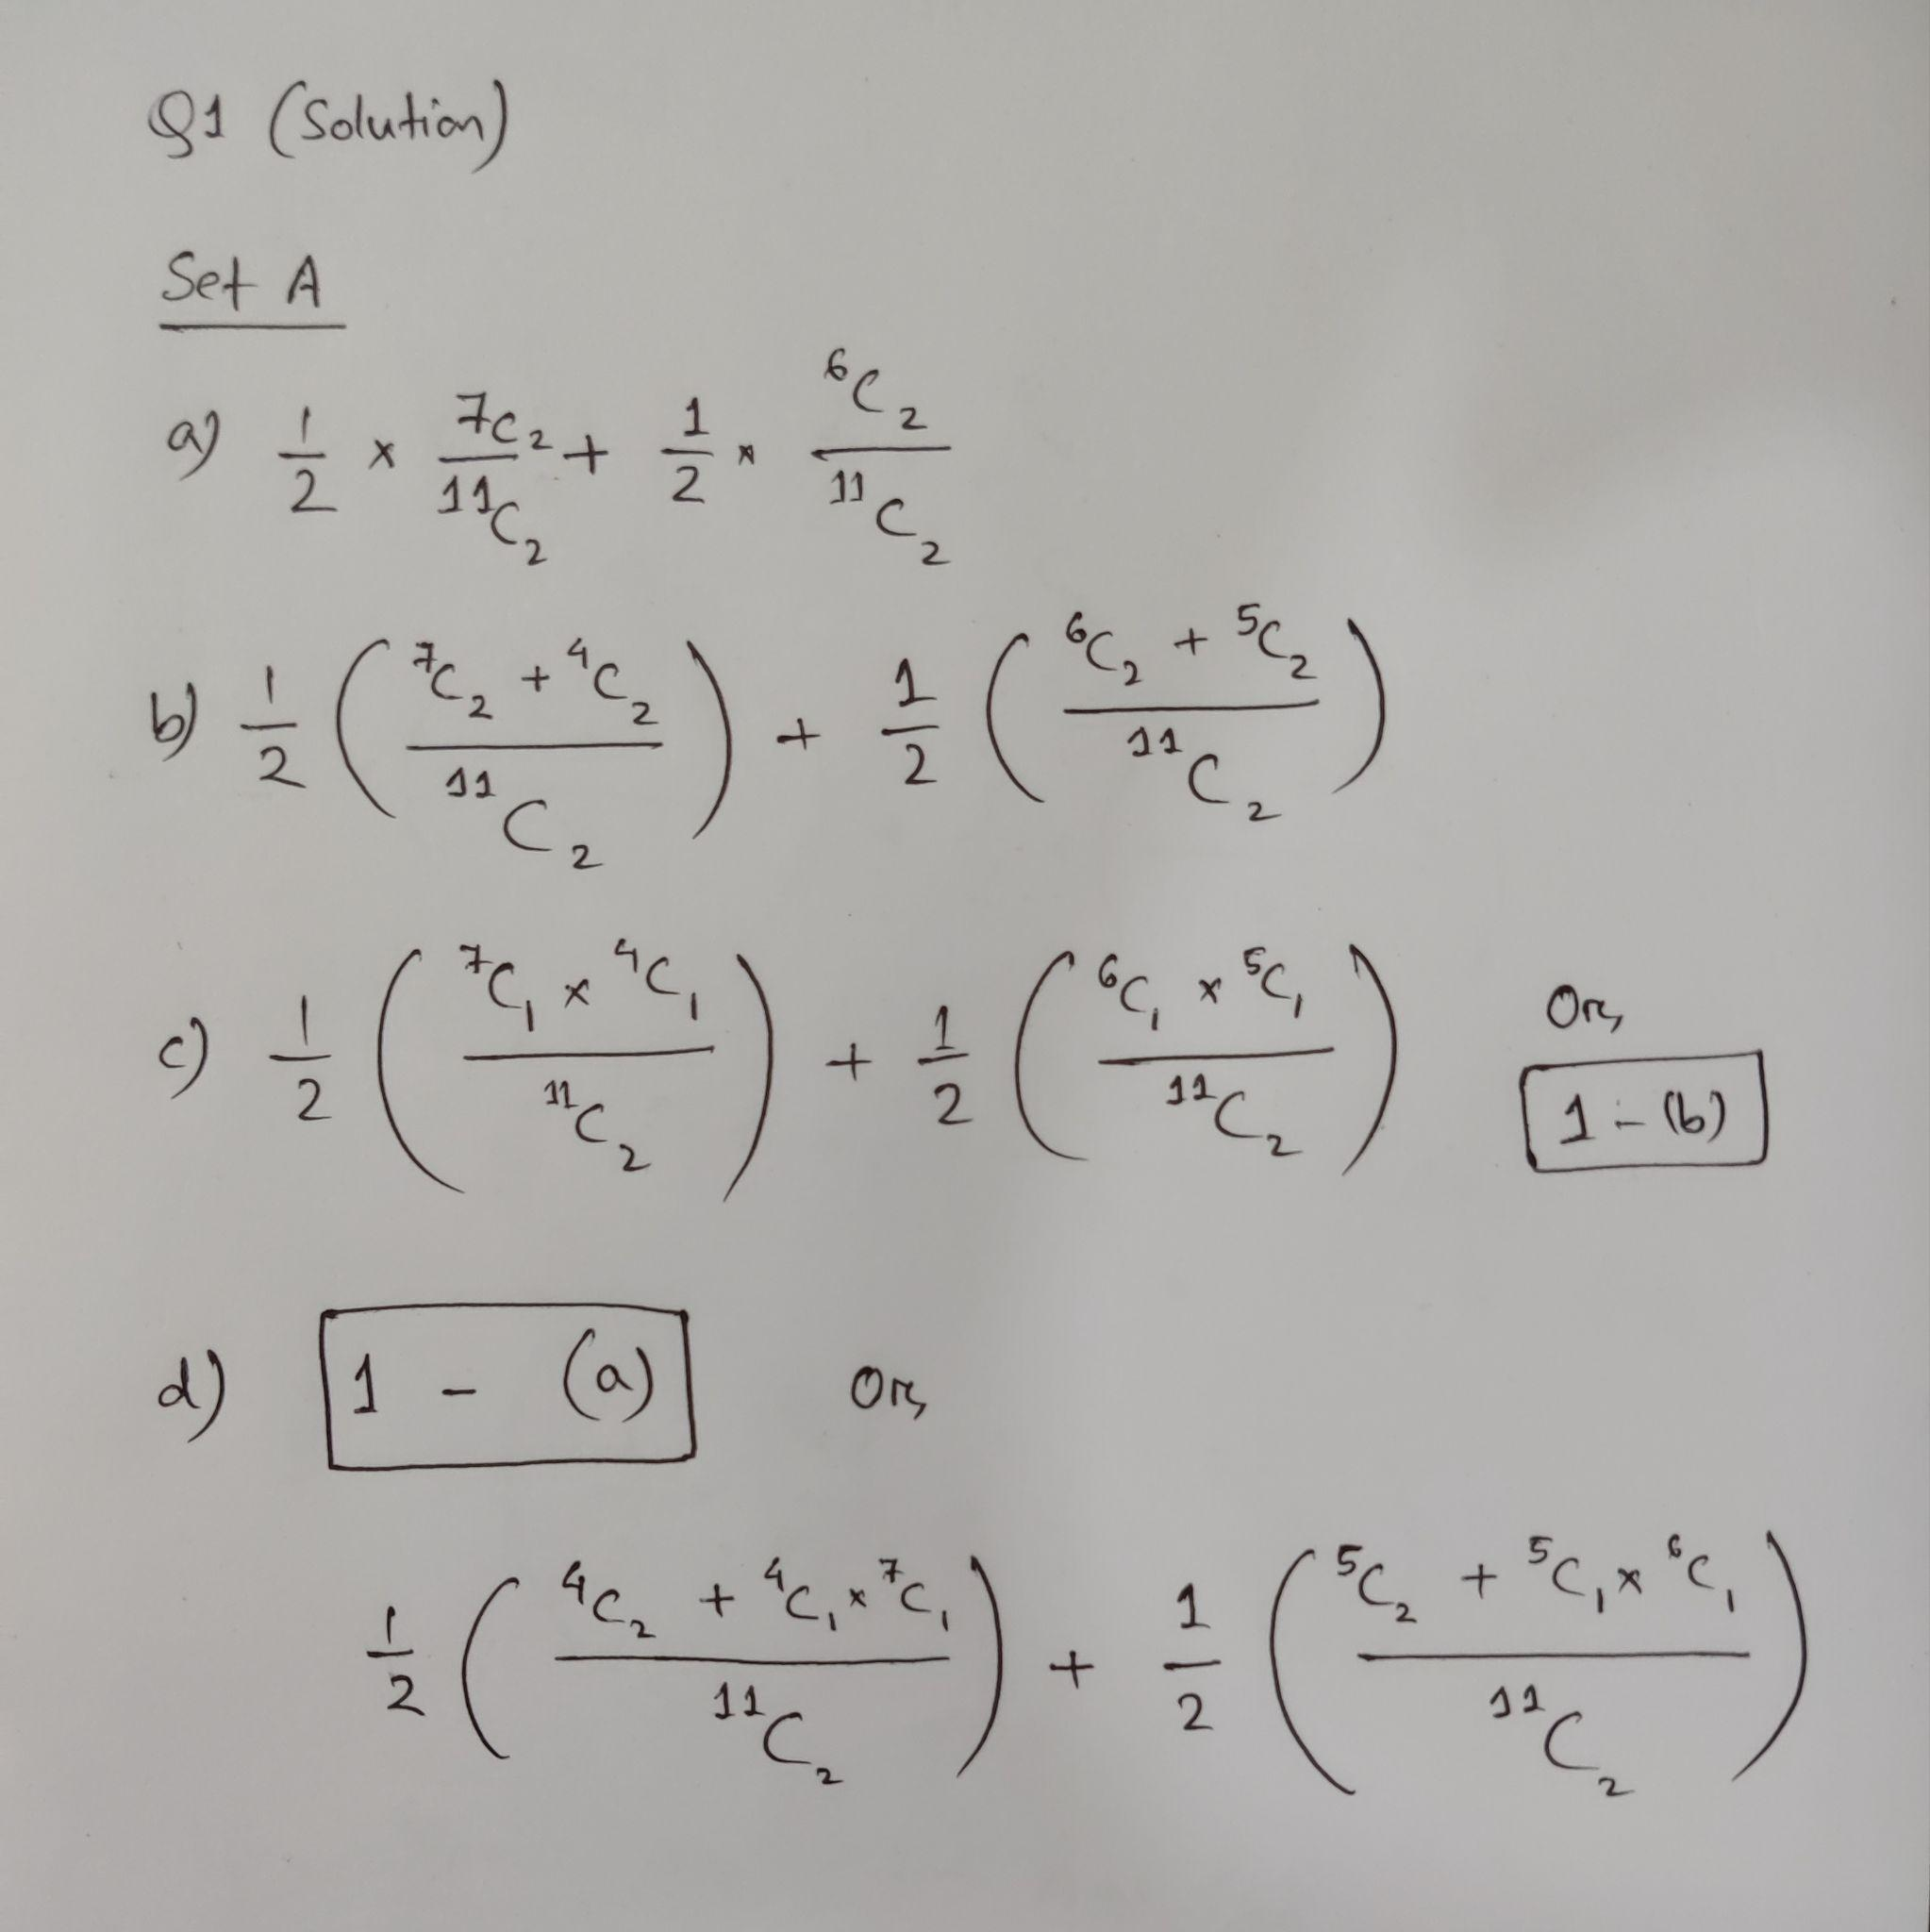 Q1 (Solution)
Set A
a) 1/2 × ⁷C₂/¹¹C₂ + 1/2 × ⁶C₂/¹¹C₂
b) 1/2 ( (⁷C₂ + ⁴C₂)/¹¹C₂ ) + 1/2 ( (⁶C₂ + ⁵C₂)/¹¹C₂ )
c) 1/2 ( (⁷C₁ × ⁴C₁)/¹¹C₂ ) + 1/2 ( (⁶C₁ × ⁵C₁)/¹¹C₂ ) Or, 1 - (b)
d) 1 - (a) Or,
1/2 ( (⁴C₂ + ⁴C₁ × ⁷C₁)/¹¹C₂ ) + 1/2 ( (⁵C₂ + ⁵C₁ × ⁶C₁)/¹¹C₂ )